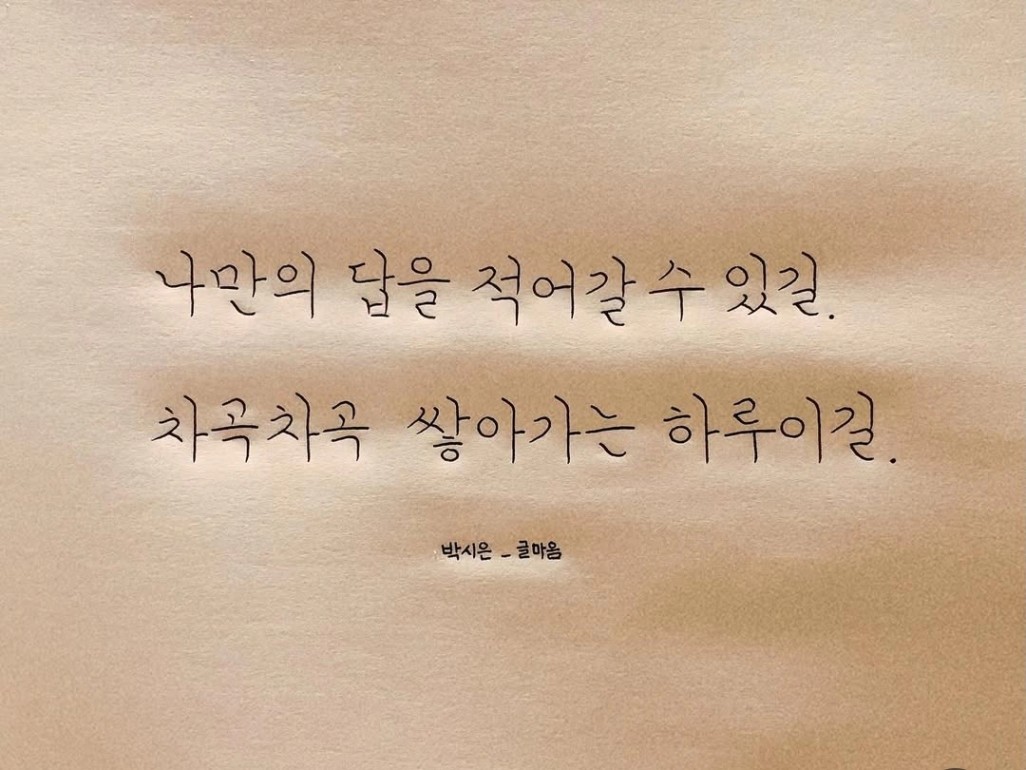 나만의 답을 적어갈 수 있길.
차곡차곡 쌓아가는 하루이길.
박시은 - 글마음